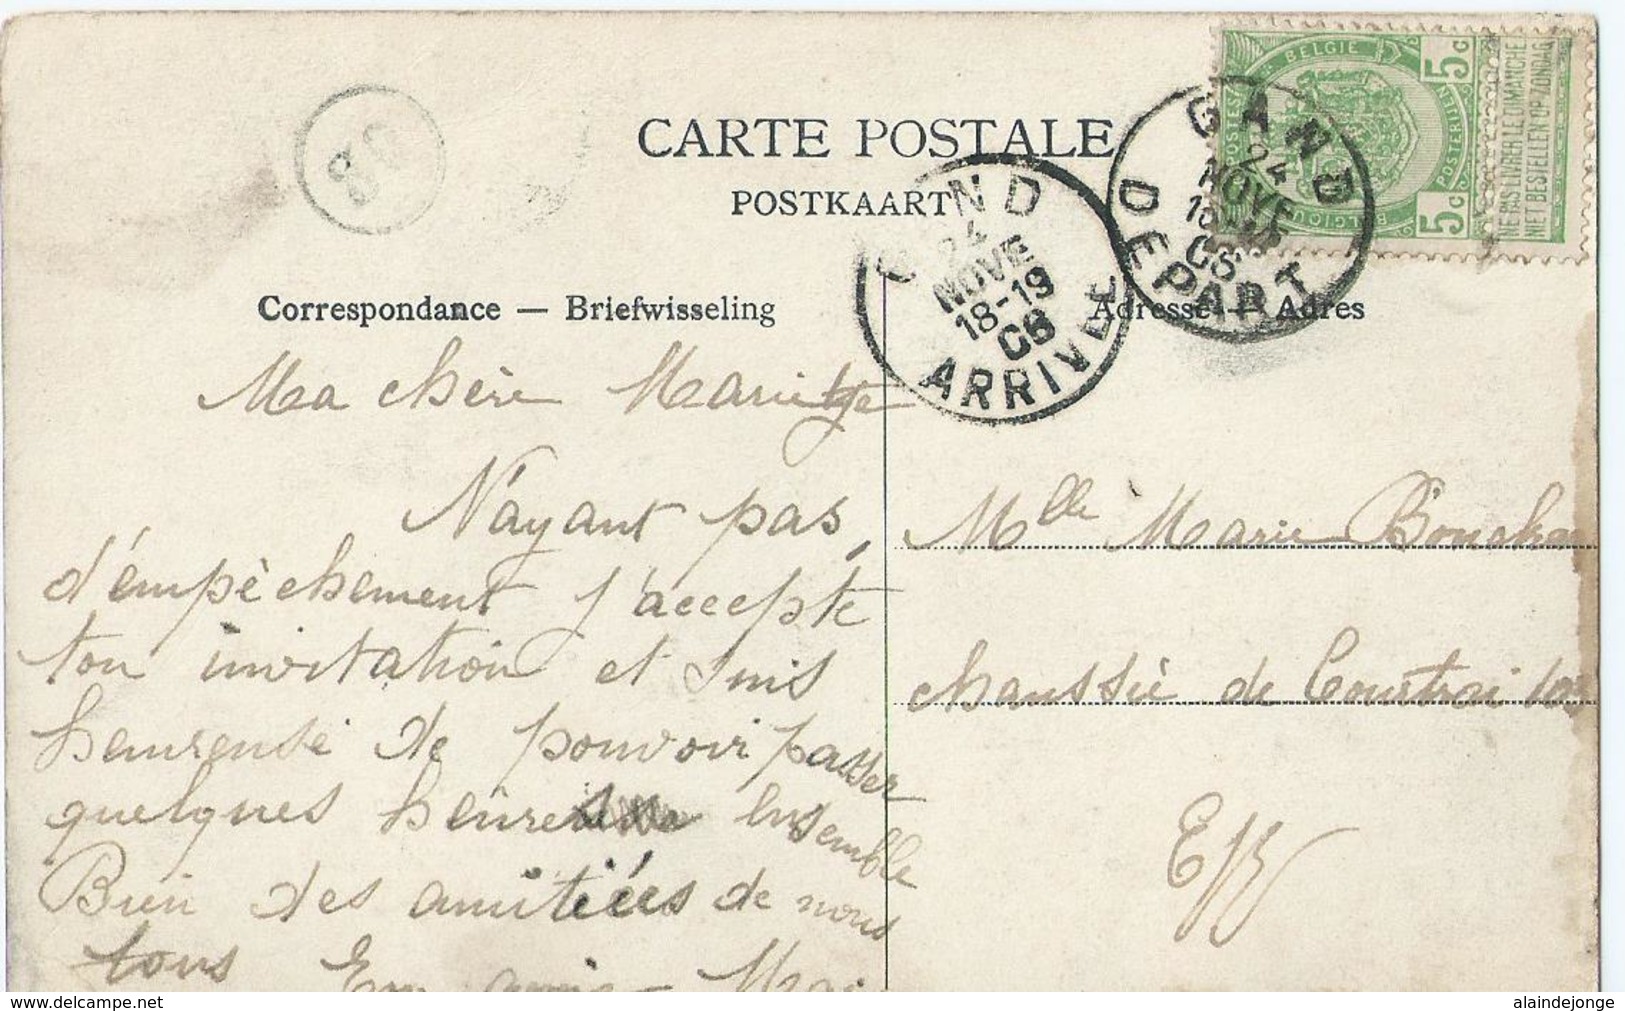 CARTE POSTALE
POSTKAART
Correspondance — Briefwisseling
Adresse — Adres
BELGIE
BELGIQUE
5c
5c
NE PAS LIVRER LE DIMANCHE
NIET BESTELLEN OP ZONDAG
GAND
24
NOVE
DEPART
GAND
24
NOVE
18-19
06
ARRIVEE
Ma chère Mariette
N'ayant pas
d'émpèchement j'accepte
ton invitation et suis
heureuse de pouvoir passer
quelques heures ensemble
Bien des amitiées de nous
tous
Mlle Marie
chaussée de Courtrai
delcampe.net
alaindejonge